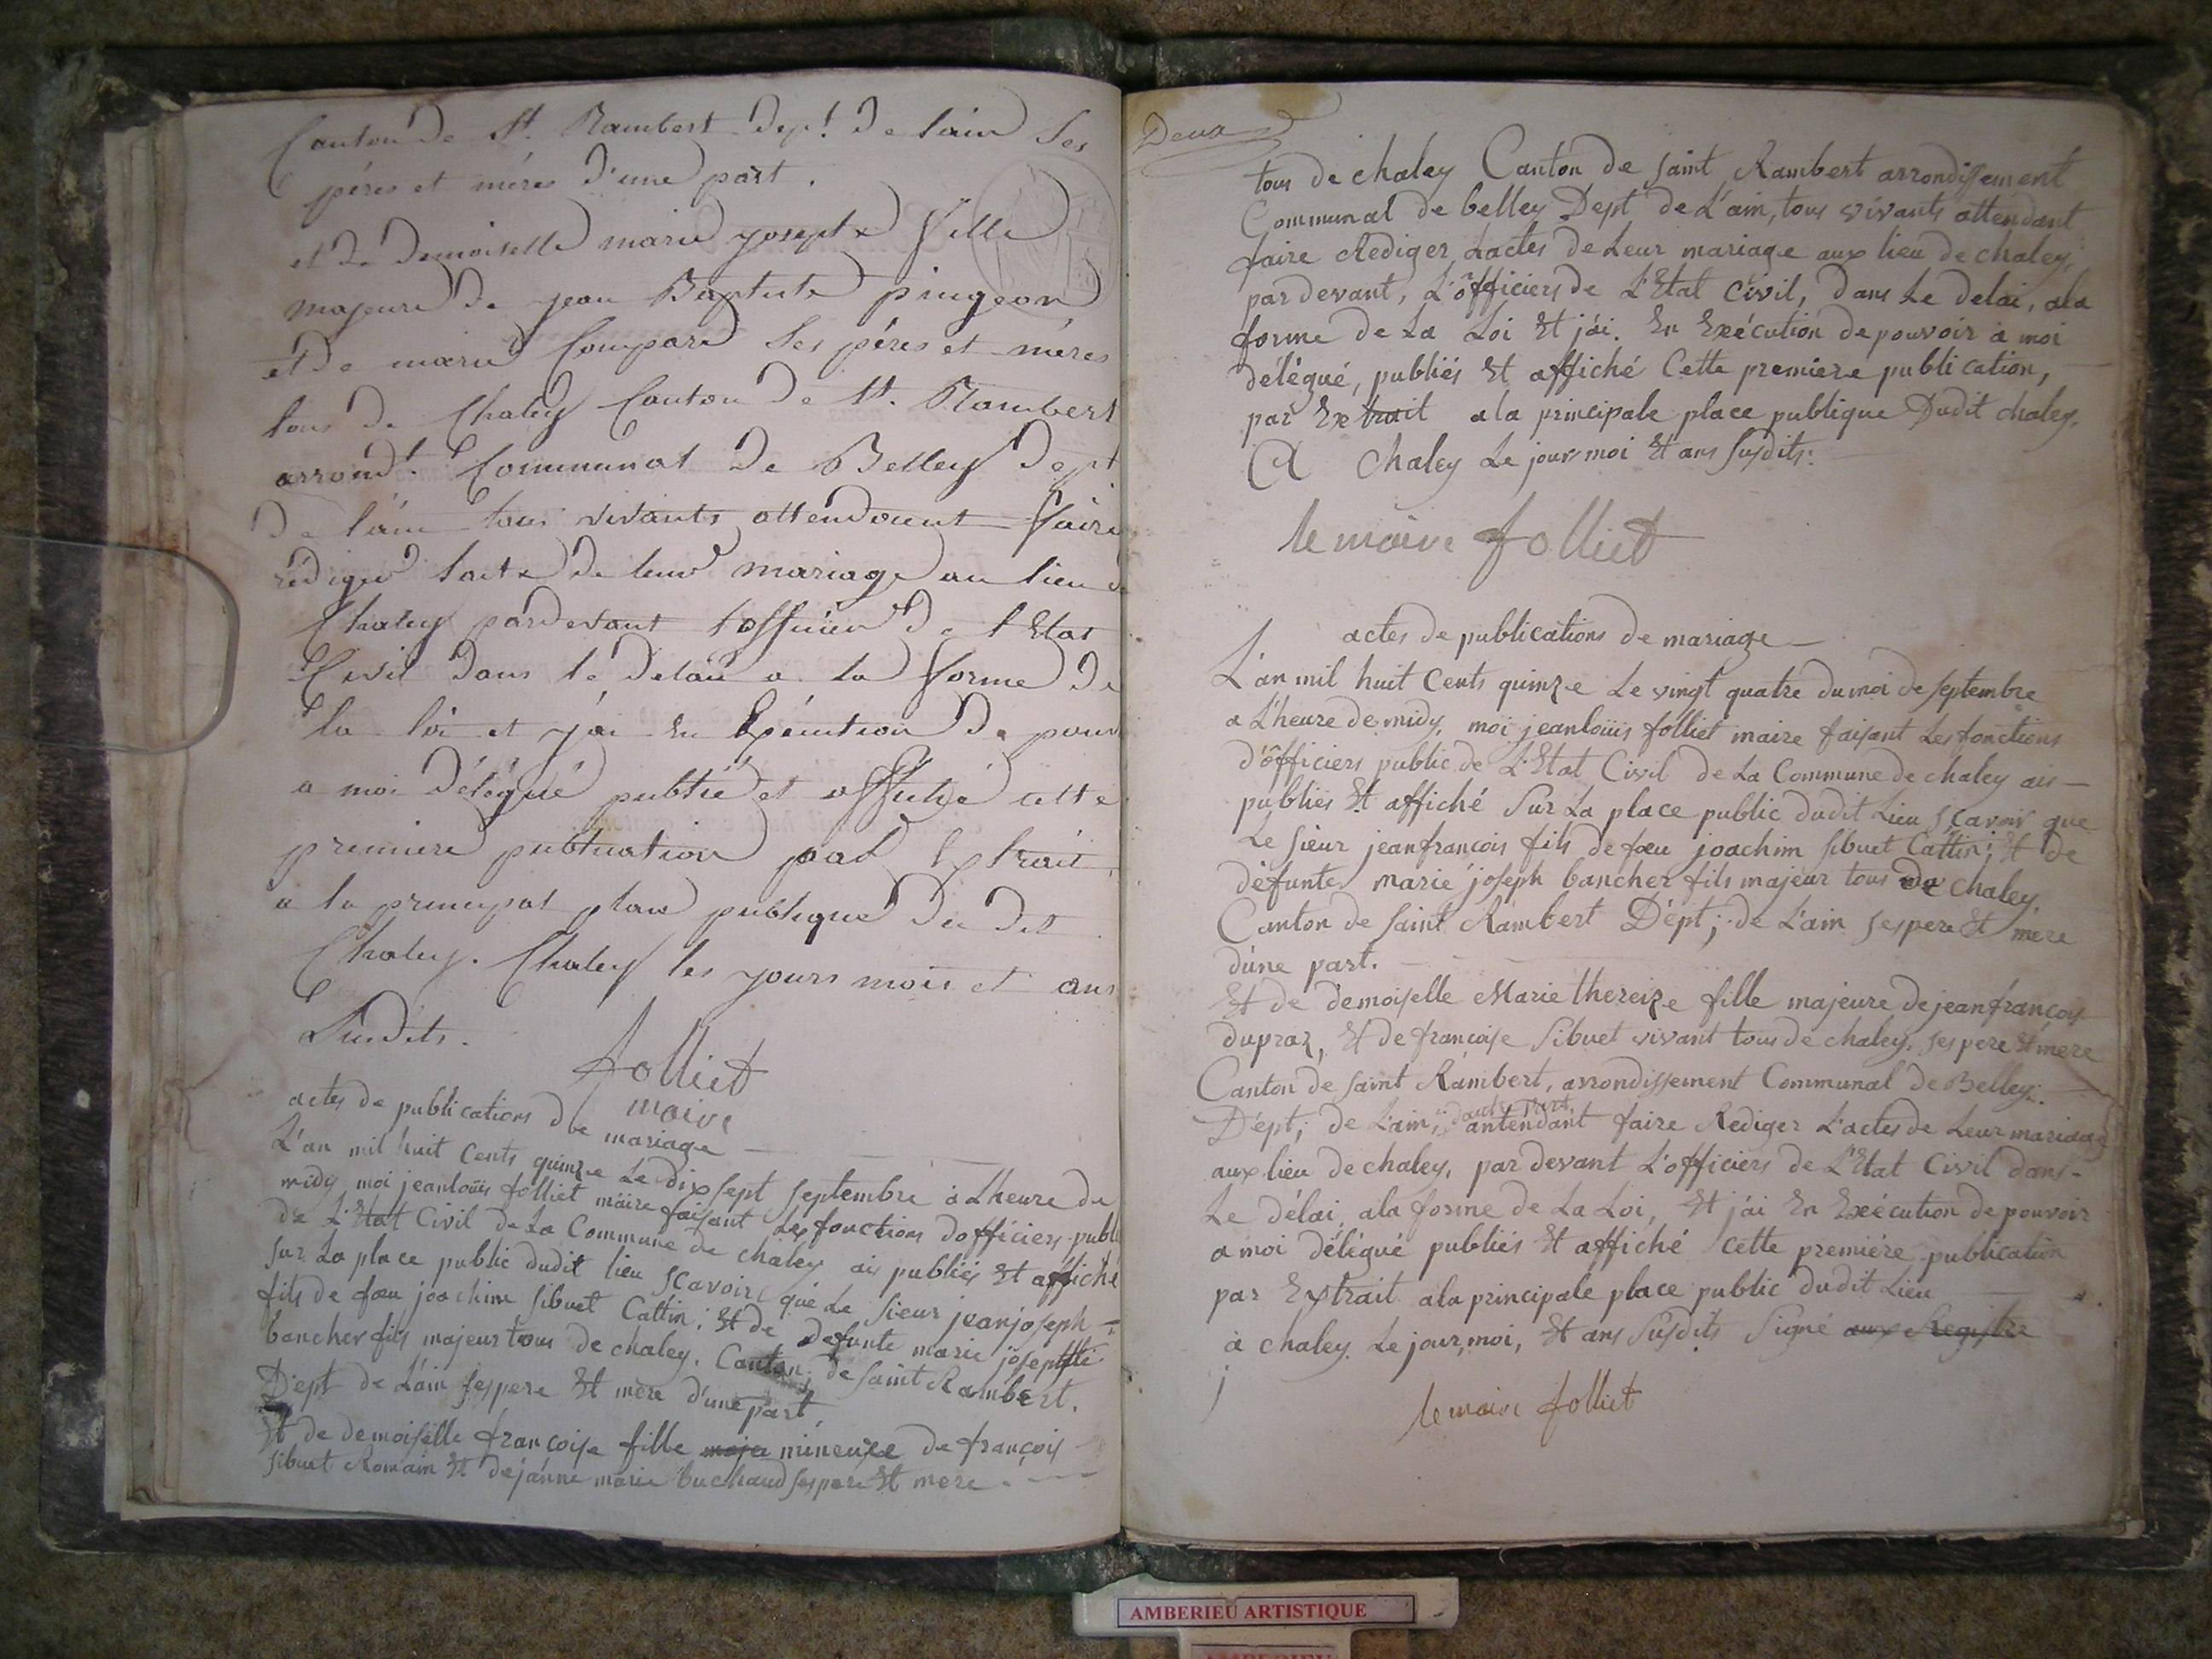 Canton de St. Rambert dept. de lain Ses
péres et méres d'une part.
et de Demoiselle marie josepte fille
majeure de jean Baptiste pingeon
et de marie Compare Ses péres et méres
tous de Chaley Canton de St. Rambert
arrondt. Communal de Belley Dept
De l'ain tous vivants attendant faire
rédiger lacte de leur mariage au lieu de
Chaley pardevant lofficier de l'Etat
Civil dans le delai a la forme de
la loi et j'ai En Exécution de pouv
a moi délégué publié et affiché cette
premiere publication par Extrait
a la principal place publique du dit
Chaley. Chaley les jours mois et ans
Susdits.
folliet
maire
actes de publications de mariage
L'an mil huit Cents quinze Le dix sept septembre à L'heure de
midy moi jeanloüis folliet maire faisant Les fonctions dofficiers publ
de L'Etat Civil de La Commune de chaley ais publiés Et affiché
sur La place public dudit lieu scavoir que Le sieur jeanjoseph
fils de foeu joachim sibuet Cattin; Et de defunte marie josephte
bancher fils majeur tous de chaley. Canton de saint Rambert.
Dept de L'ain ses pere Et mere d'une part,
Et de demoiselle françoise fille maje mineuze de françois
sibuet Romain Et de jánne marie buchaud ses pere Et mere.
Deux
tous de chaley Canton de saint Rambert arrondissement
Communal de belley Dept de L'ain, tous vivants attendant
faire Rediger Lactes de Leur mariage aux lieu de chaley,
par devant, L'ôfficiers de L'Etat civil, Dans Le delai, ala
forme de La Loi Et jái. En Exécution de pouvoir à moi
délégué, publiés Et affiché Cette premiere publication,
par Extrait ala principale place publique Dudit chaley.
A Chaley Le jour moi Et ans Susdits.
le maire folliet
actes de publications de mariage
L'an mil huit Cents quinze Le vingt quatre du moi de septembre
a L'heure de midy, moi jeanloüis folliet maire faisant Les fonctions
d'ôfficiers public de L'Etat Civil de La Commune de chaley ais
publiés Et affiché Sur La place public dudit Lieu scavoir que
Le sieur jeanfrançois fils de foeu joachim sibuet Cattin; Et de
défunte marie joseph bancher fils majeur tous de chaley.
Canton de saint Rambert Dépt; de L'ain ses pere Et mere
dúne part.
Et de demoiselle Marie thereize fille majeure de jeanfrançois
dupraz, Et de françoise Sibuet vivant tous de chaley, ses pere Et mere
Canton de saint Rambert, arrondissement Communal de Belley.
Dépt; de L'ain; dautre part,
antendant faire Rediger L'actes de Leur mariage
aux lieu de chaley, par devant L'officiers de L'Etat Civil dans
Le délai, ala forme de La Loi, Et jái En Exécution de pouvoir
a moi délégué publiés Et affiché cette premiére publication
par Extrait ala principale place public dudit Lieu
à chaley. Le jour, moi, Et ans Susdits Signé aux Registre
le maire folliet
AMBERIEU ARTISTIQUE
AMBERIEU